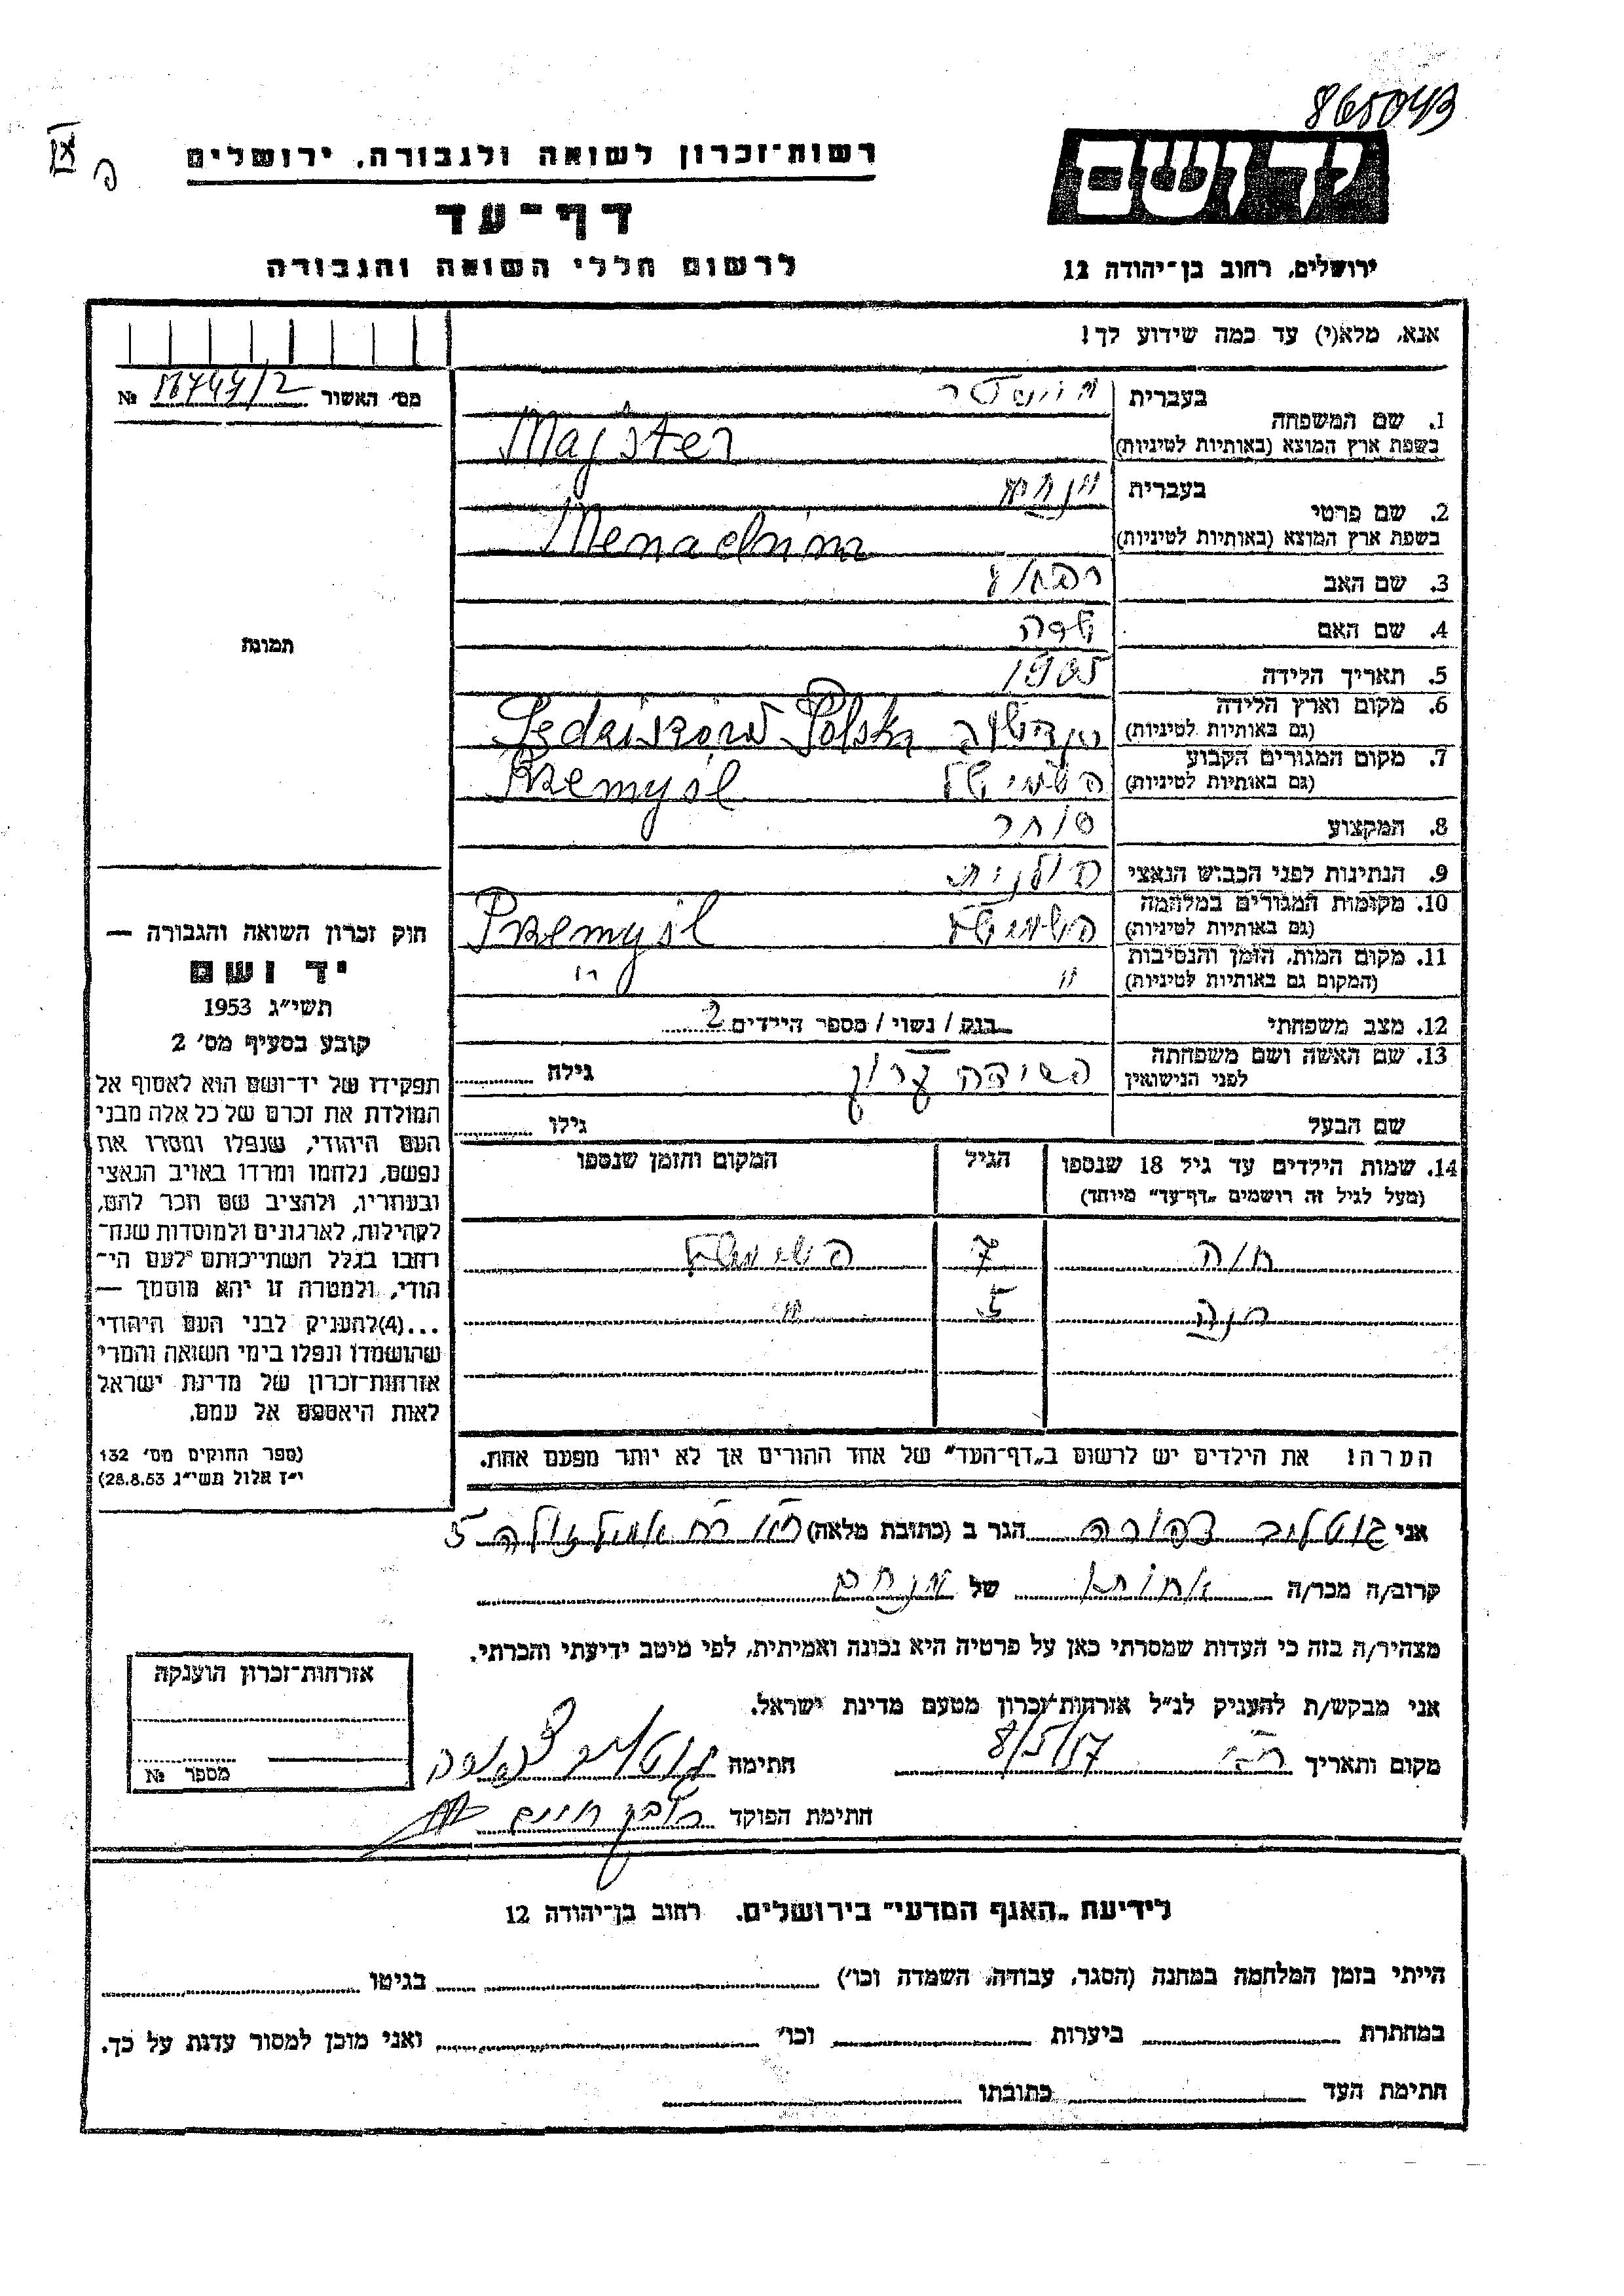 865043
רשות־זכרון לשואה ולגבורה, ירושלים
יד ושם
דף־עד
ירושלים, רחוב בן־יהודה 12
לרשום חללי השואה והגבורה
אנא, מלא(י) עד כמה שידוע לך!
מס׳ האשור №
1. שם המשפחה
בעברית מיוסטר
בשפת ארץ המוצא (באותיות לטיניות) Majster
2. שם פרטי
בעברית מנחם
בשפת ארץ המוצא (באותיות לטיניות) Menachim
3. שם האב
4. שם האם
5. תאריך הלידה 1905
6. מקום וארץ הלידה
(גם באותיות לטיניות) Polska
7. מקום המגורים הקבוע
(גם באותיות לטיניות) פשמישל Przemyśl
8. המקצוע סוחר
9. הנתינות לפני הכבוש הנאצי פולנית
10. מקומות המגורים במלחמה
(גם באותיות לטיניות) פשמישל Przemyśl
11. מקום המות, הזמן והנסיבות
(המקום גם באותיות לטיניות) " "
12. מצב משפחתי רווק / נשוי / מספר הילדים 2
13. שם האשה ושם משפחתה
לפני הנישואין גילה
שם הבעל גילו
14. שמות הילדים עד גיל 18 שנספו
(מעל לגיל זה רושמים „דף־עד" מיוחד)
הגיל
המקום והזמן שנספו
חוה 7 פשימישל
5 "
הערה! את הילדים יש לרשום ב„דף־העד" של אחד ההורים אך לא יותר מפעם אחת.
תמונה
חוק זכרון השואה והגבורה —
יד ושם
תשי״ג 1953
קובע בסעיף מס׳ 2
תפקידו של יד־ושם הוא לאסוף אל
המולדת את זכרם של כל אלה מבני
העם היהודי, שנפלו ומסרו את
נפשם, נלחמו ומרדו באויב הנאצי
ובעוזריו, ולהציב שם וזכר להם,
לקהילות, לארגונים ולמוסדות שנח־
רבו בגלל השתייכותם לעם הי־
הודי, ולמטרה זו יהא מוסמך —
...(4)להעניק לבני העם היהודי
שהושמדו ונפלו בימי השואה והמרי
אזרחות־זכרון של מדינת ישראל
לאות היאספם אל עמם.
(ספר החוקים מס׳ 132
י״ז אלול תשי״ג 28.8.53)
אני גוטליב דבורה הגר ב (כתובת מלאה) 5
קרוב/ה מכר/ה אחותו של מנחם
מצהיר/ה בזה כי העדות שמסרתי כאן על פרטיה היא נכונה ואמיתית, לפי מיטב ידיעתי והכרתי.
אני מבקש/ת להעניק לנ״ל אזרחות־זכרון מטעם מדינת ישראל.
מקום ותאריך 8/5/57 חתימה
חתימת הפוקד
אזרחות־זכרון הוענקה
מספר №
לידיעת „האגף המדעי" בירושלים, רחוב בן־יהודה 12
הייתי בזמן המלחמה במחנה (הסגר, עבודה, השמדה וכו׳) בגיטו
במחתרת ביערות וכו׳ ואני מוכן למסור עדות על כך.
חתימת העד כתובתו